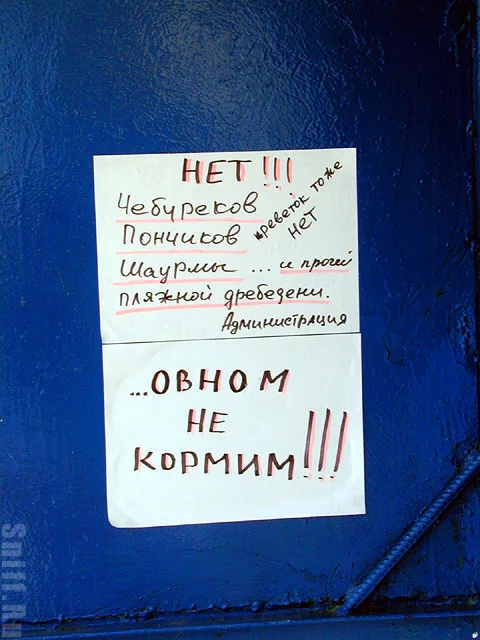 НЕТ!!!
Чебуреков
Пончиков
креветок тоже
НЕТ
Шаурмы ... и прочей
пляжной дребедени.
Администрация
...ОВНОМ
НЕ
КОРМИМ!!!
Sniff.Ru